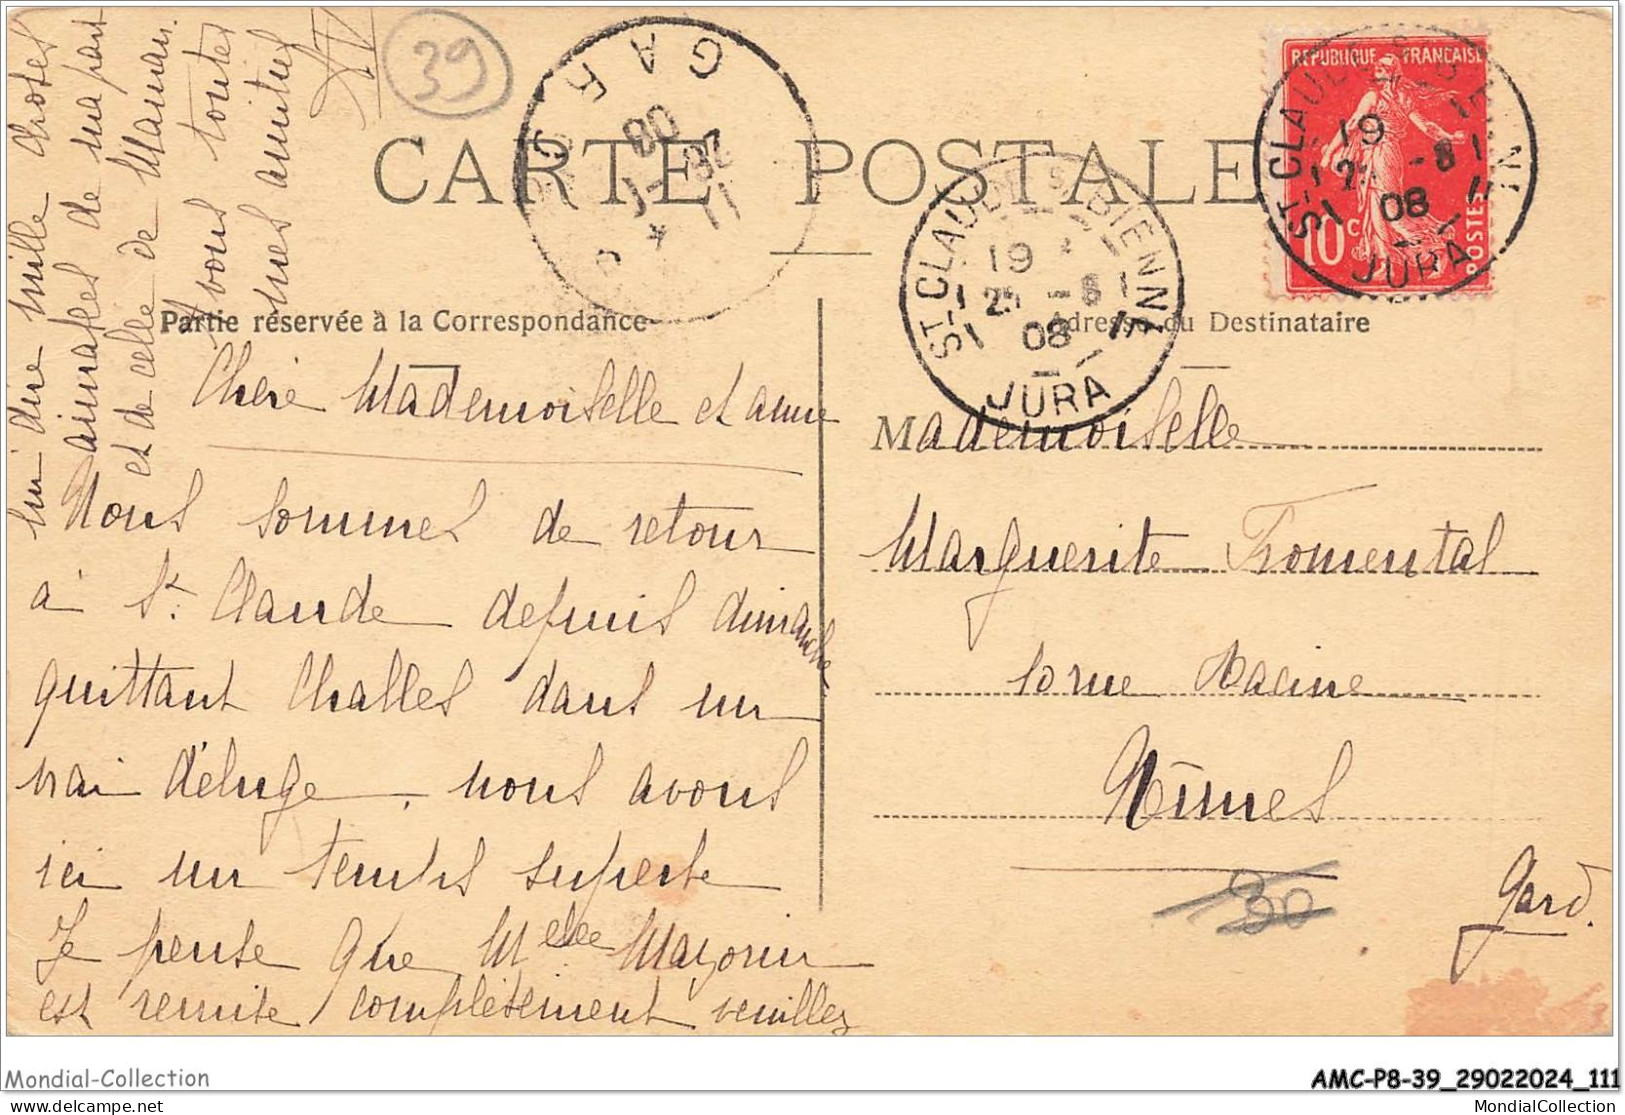 CARTE POSTALE
Partie réservée à la Correspondance
Adresse du Destinataire
Chère Mademoiselle et amie
Nous sommes de retour
à St. Claude depuis dimanche
quittant Challes dans un
vrai déluge, nous avons
ici un temps superbe
Je pense que Melle Mazorin
est remise complètement veuillez
lui dire mille choses
aimables de ma part
et de celle de Maman.
A vous toutes
mes amitiés
Mademoiselle
Marguerite Fromental
10 rue Racine
Nîmes
Gard.
39
30
REPUBLIQUE FRANÇAISE
10c
POSTES
ST-CLAUDE S BIENNE
19
25 -8
08
JURA
ST-CLAUDE S BIENNE
19
25 -8
08
JURA
GARD
11
26 -
08
Mondial-Collection
AMC-P8-39_29022024_111
picture to you by
MondialCollection